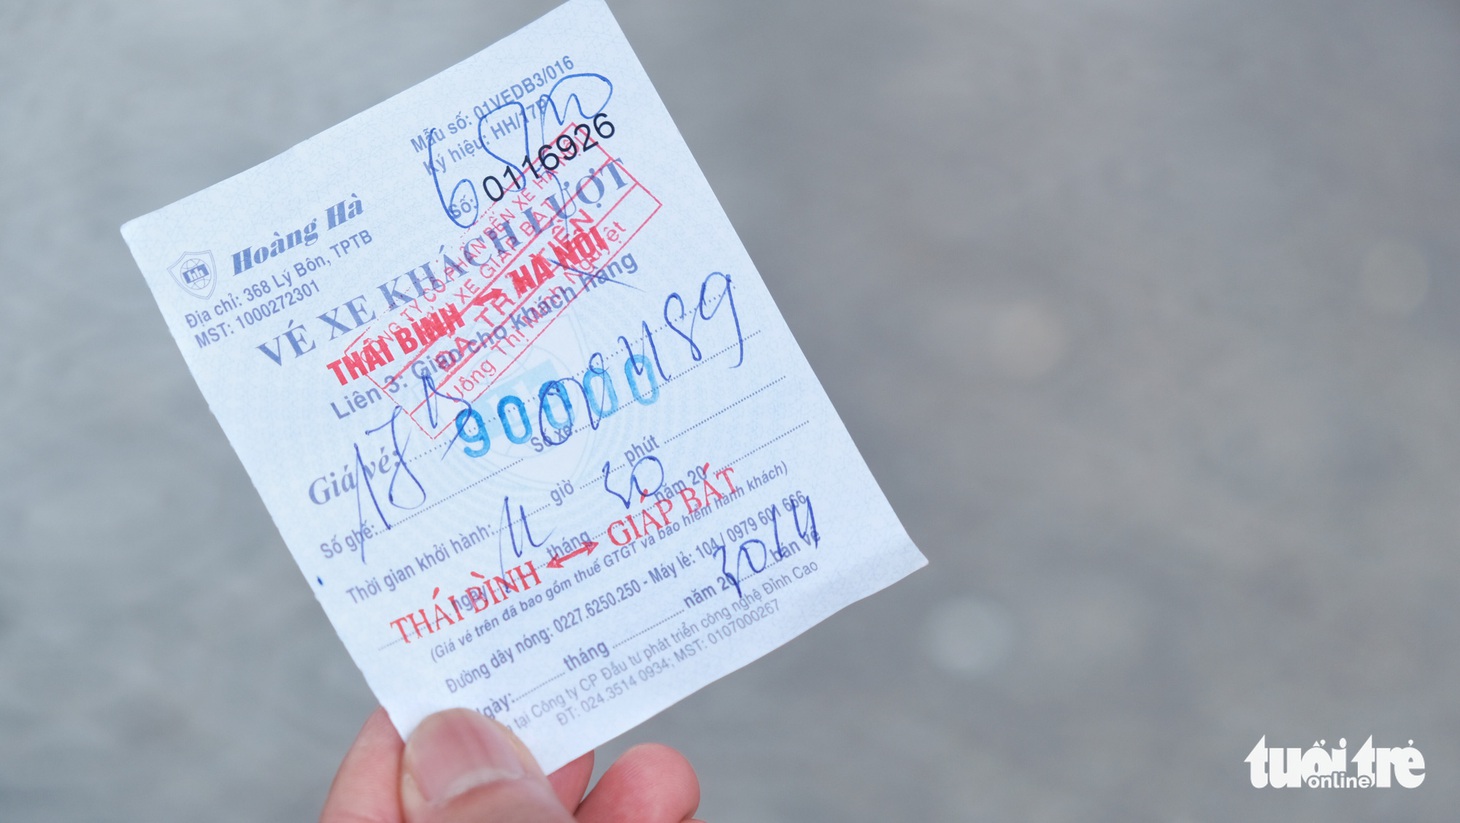 Mẫu số: 01VEDB3/016
Ký hiệu: HH/17P
Số: 0116926
Hoàng Hà
Địa chỉ: 368 Lý Bôn, TPTB
MST: 1000272301
VÉ XE KHÁCH LƯỢT
THÁI BÌNH HÀ NỘI
Liên 3: Giao cho khách hàng
Giá vé:
90000
Số ghế: Số xe
Thời gian khởi hành: 11 giờ 30 phút
ngày tháng năm 20
THÁI BÌNH GIÁP BÁT
(Giá vé trên đã bao gồm thuế GTGT và bảo hiểm hành khách)
Đường dây nóng: 0227.6250.250 - Máy lẻ: 104 / 0979 601 666
bán vé
Ngày: tháng năm 20
tại Công ty CP Đầu tư phát triển công nghệ Đỉnh Cao
ĐT: 024.3514 0934; MST: 0107000267
tuổi trẻ
online